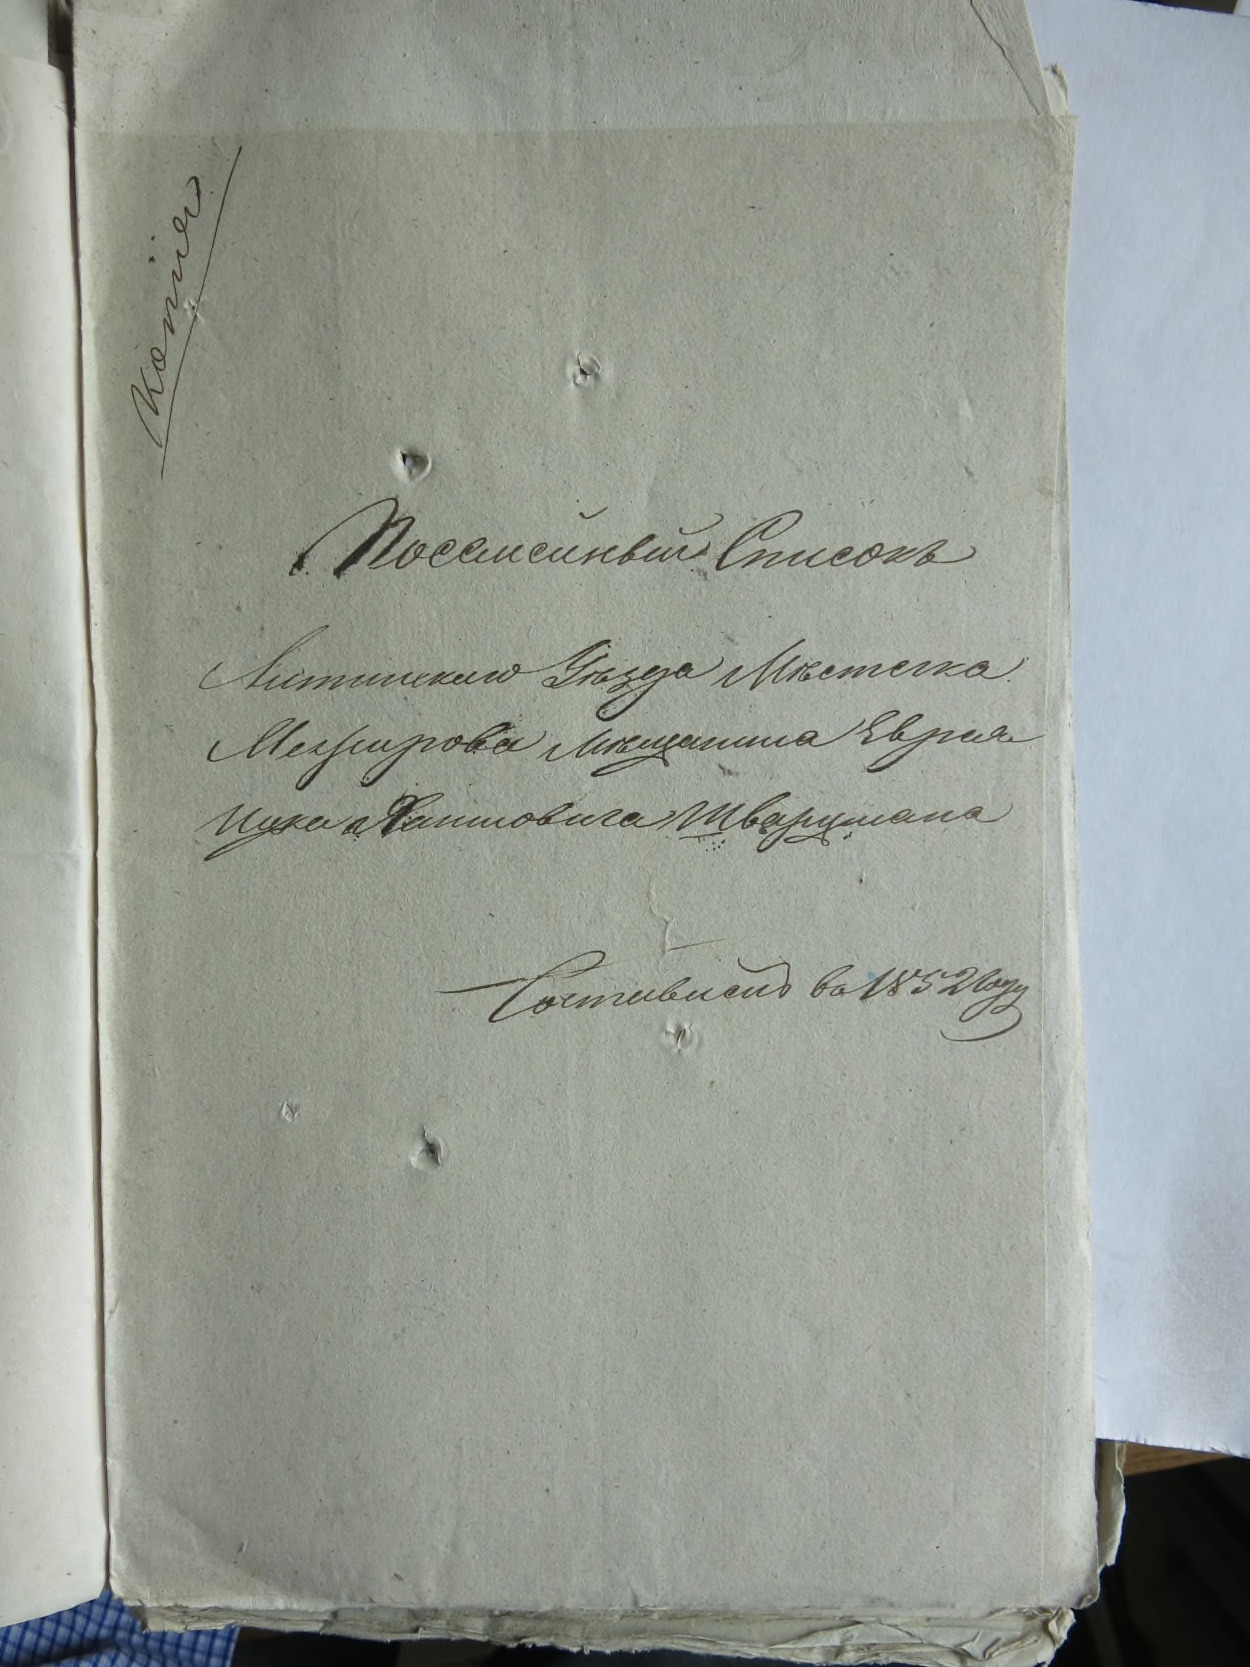 Копія
Посемейный Списокъ
Литинскаго Уѣзда Мѣстечка
Межирова Мѣщанина Еврея
Ицка Хаимовича Шварцмана
Составленъ во 1852 году